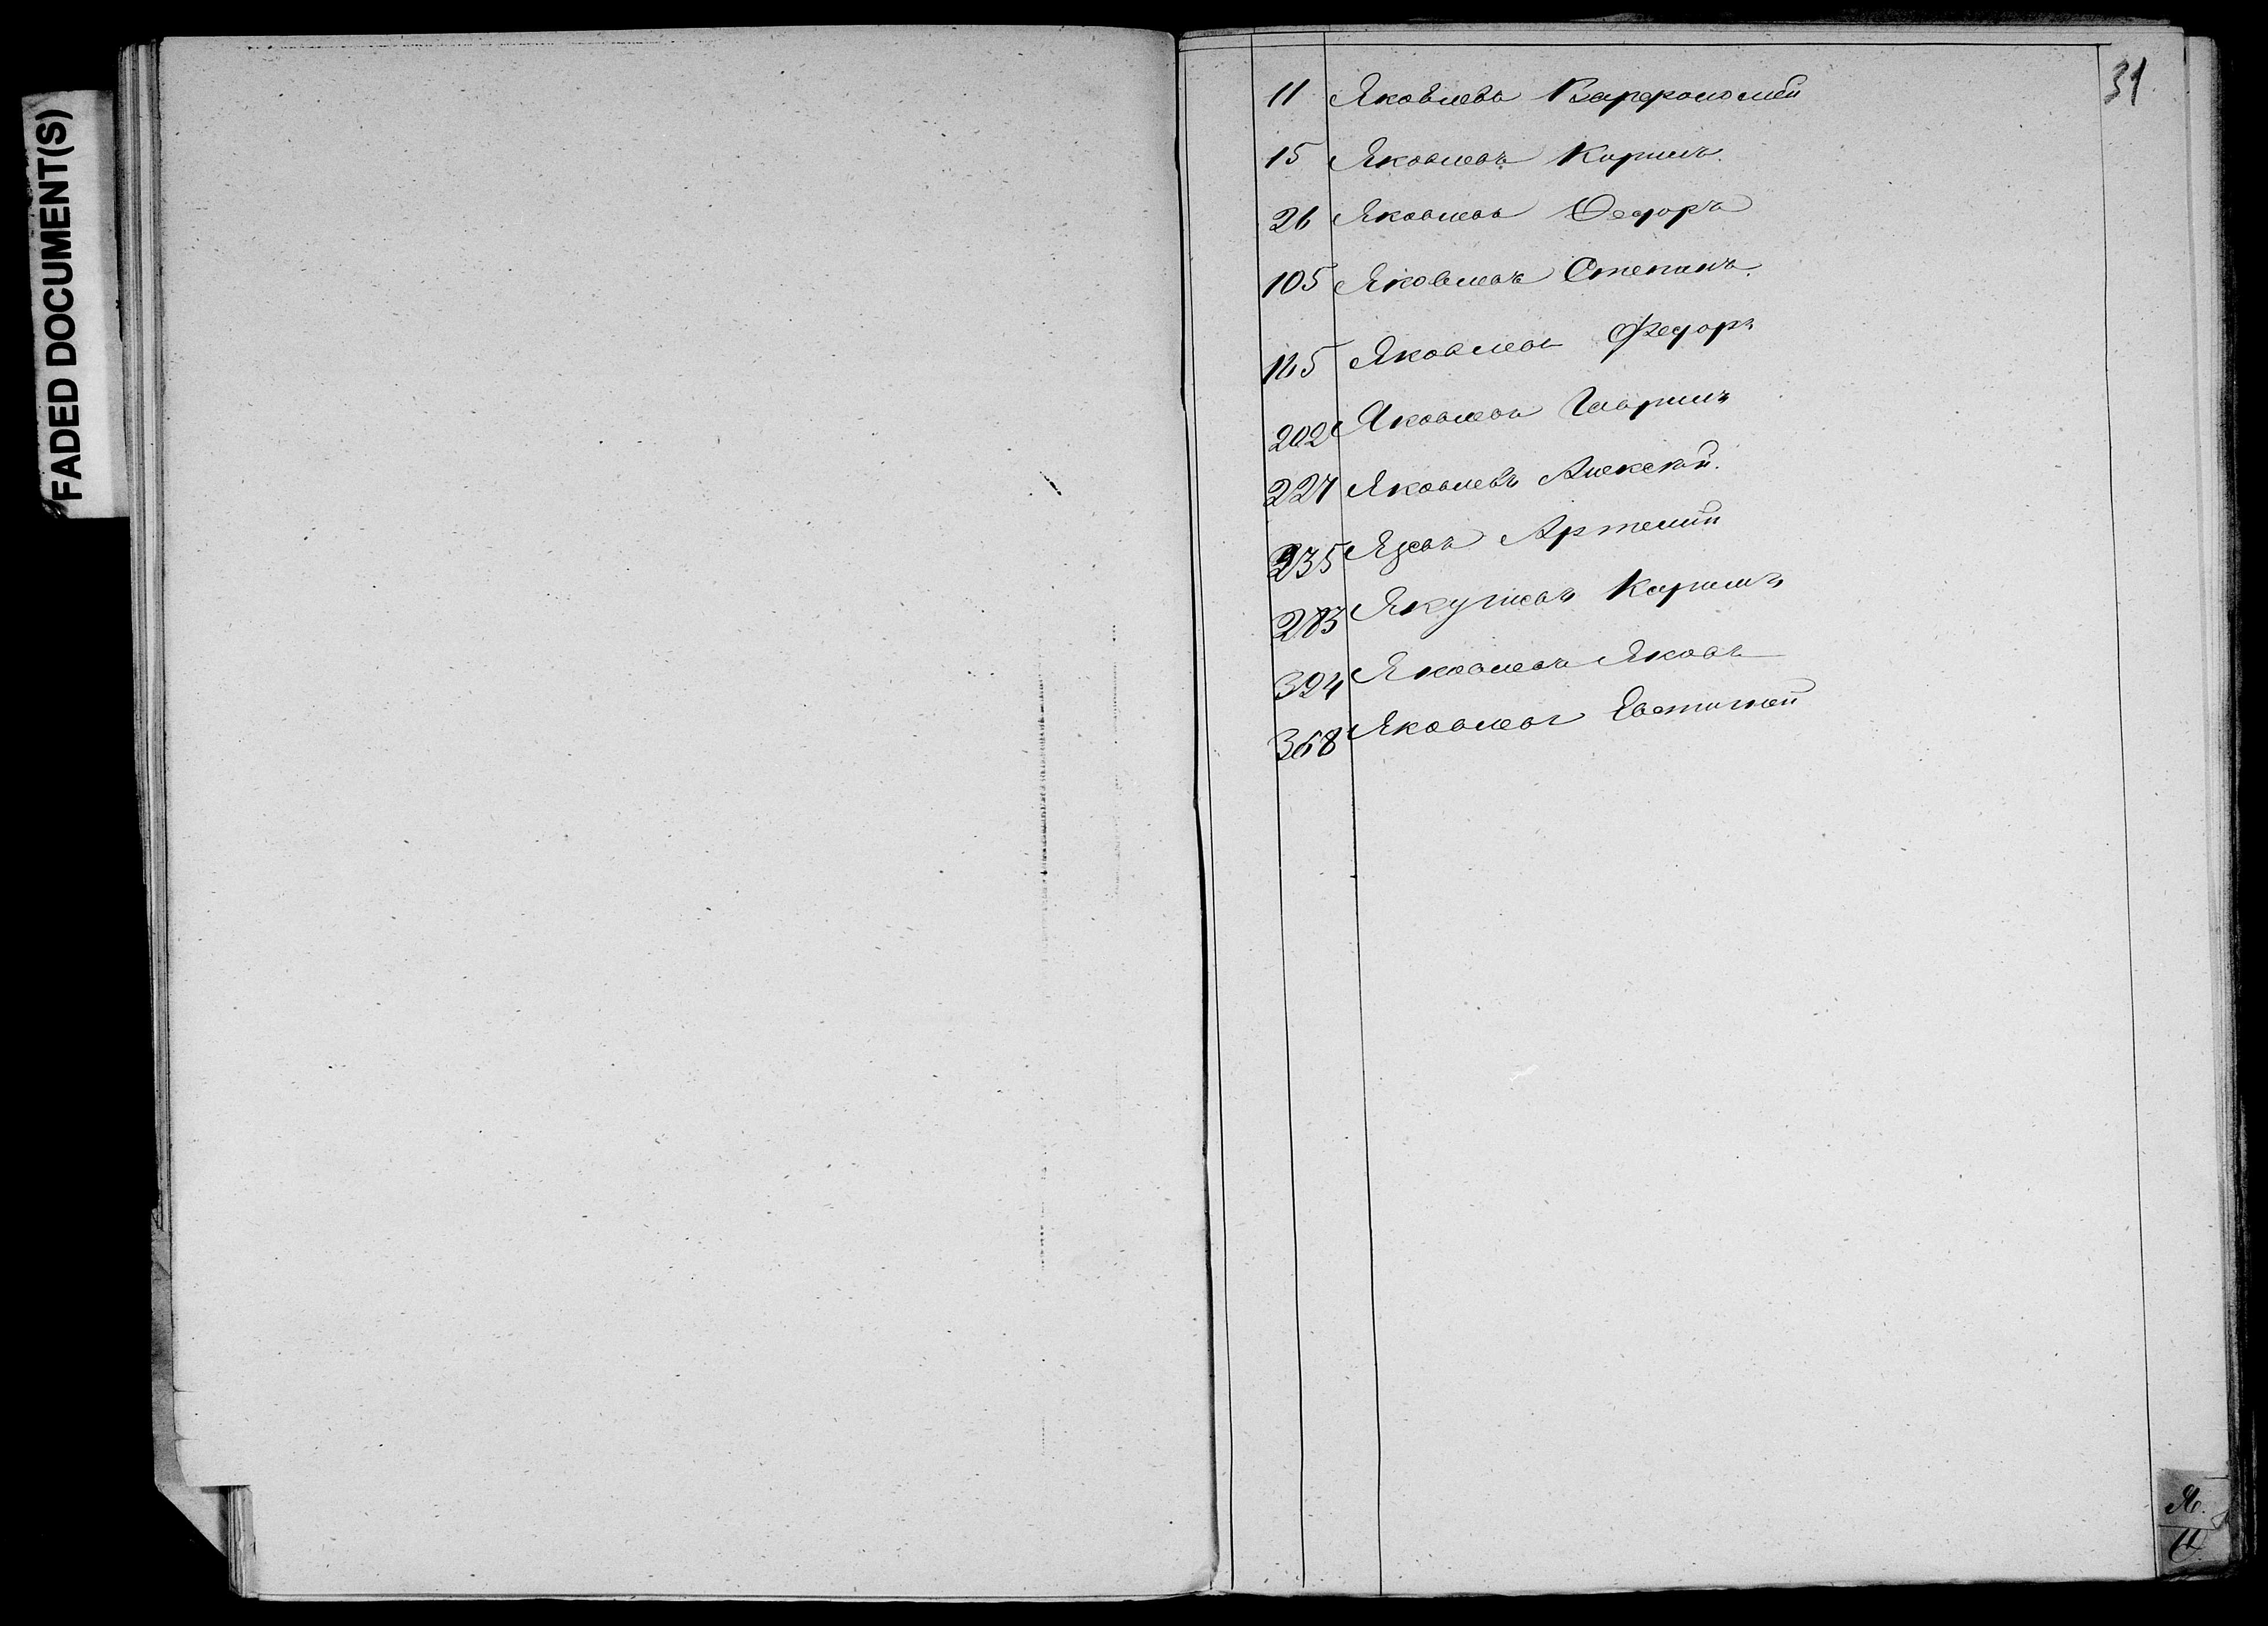 FADED DOCUMENT(S)
31
11 Яковлевъ Варфоломей
15 Яковлевъ Кирилъ.
26 Яковлевъ Ѳедоръ
105 Яковлевъ Степанъ.
165 Яковлевъ Федоръ
202 Яковлевъ Гаврилъ
227 Яковлевъ Алексѣй.
235 Язевъ Артемий
283 Якушевъ Кирилъ
324 Яковлевъ Яковъ
368 Яковлевъ Евстигней
Я.